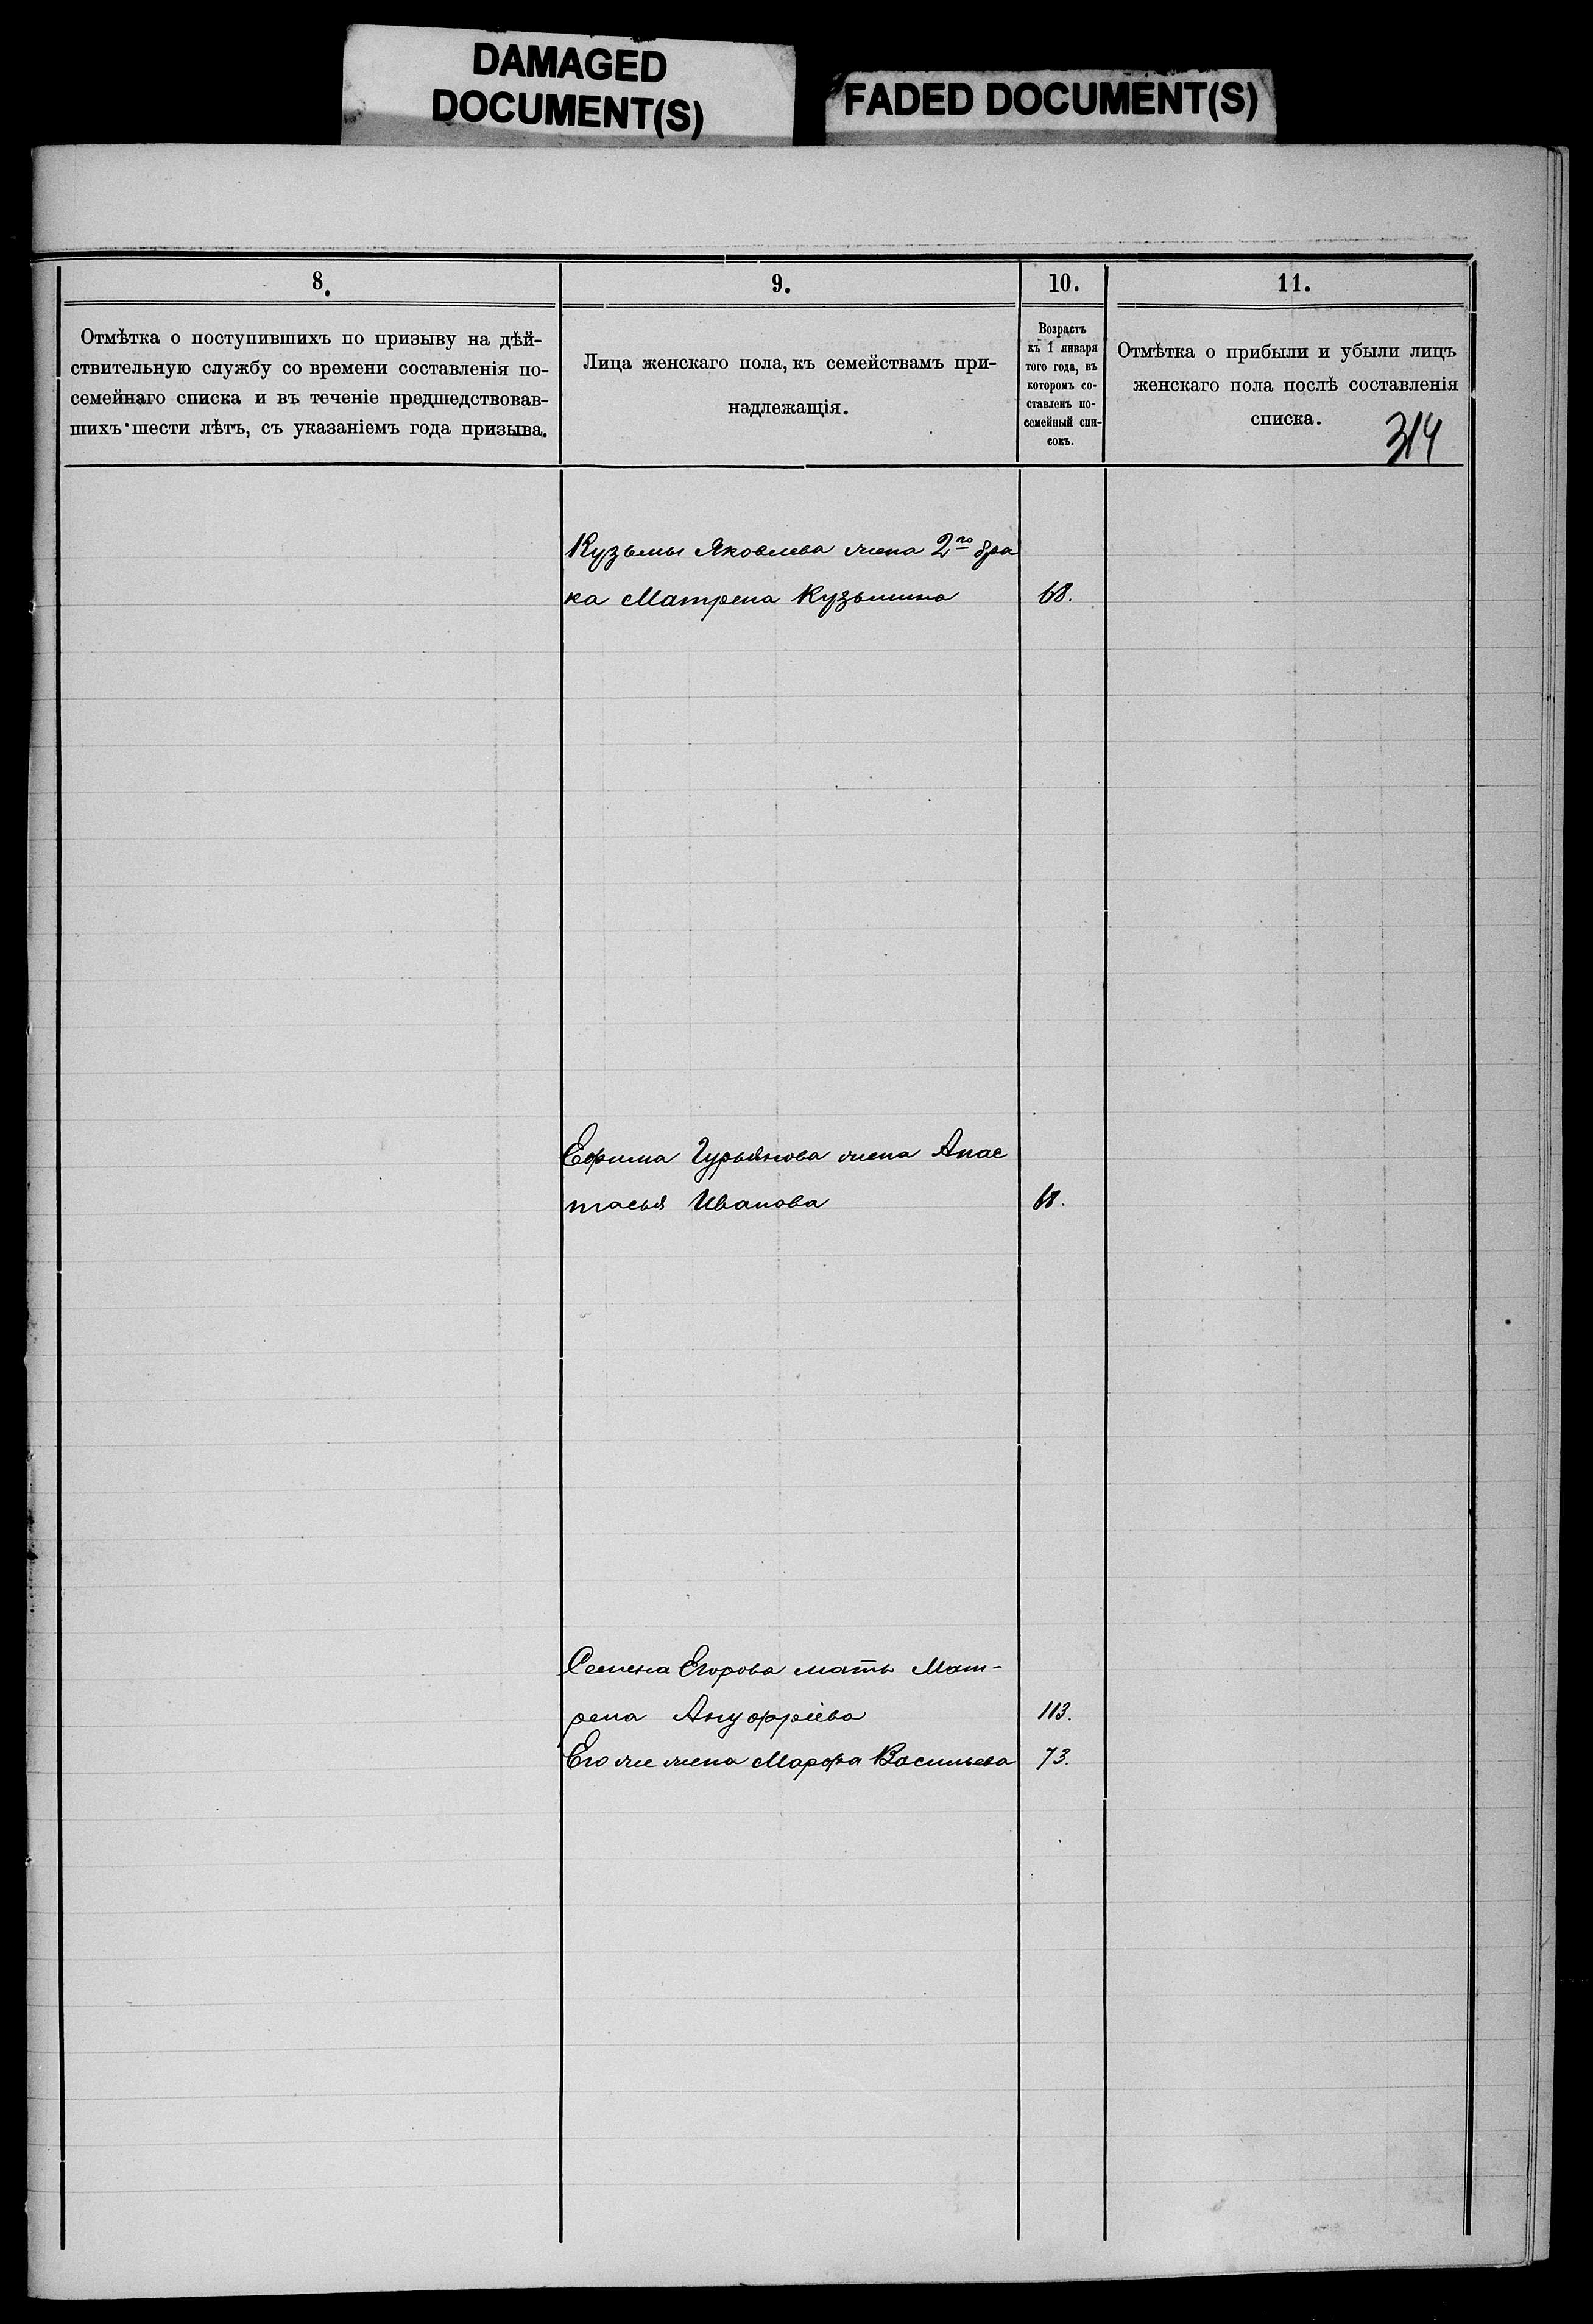 DAMAGED
DOCUMENT(S)
FADED DOCUMENT(S)
8.
Отмѣтка о поступившихъ по призыву на дѣй-
ствительную службу со времени составленія по-
семейнаго списка и въ теченіе предшедствовав-
шихъ шести лѣтъ, съ указаніемъ года призыва.
9.
Лица женскаго пола, къ семействамъ при-
надлежащія.
10.
Возрастъ
къ 1 января
того года, въ
которомъ со-
ставленъ по-
семейный спи-
сокъ.
11.
Отмѣтка о прибыли и убыли лицъ
женскаго пола послѣ составленія
списка.
314
Кузьмы Яковлева жена 2го бра
ка Матрена Кузьмина 68.
Ефима Гурьянова жена Анас
тасья Иванова 68.
Семена Егорова мать Мат-
рена Ануфріева 113.
Его же жена Марфа Васильева 73.